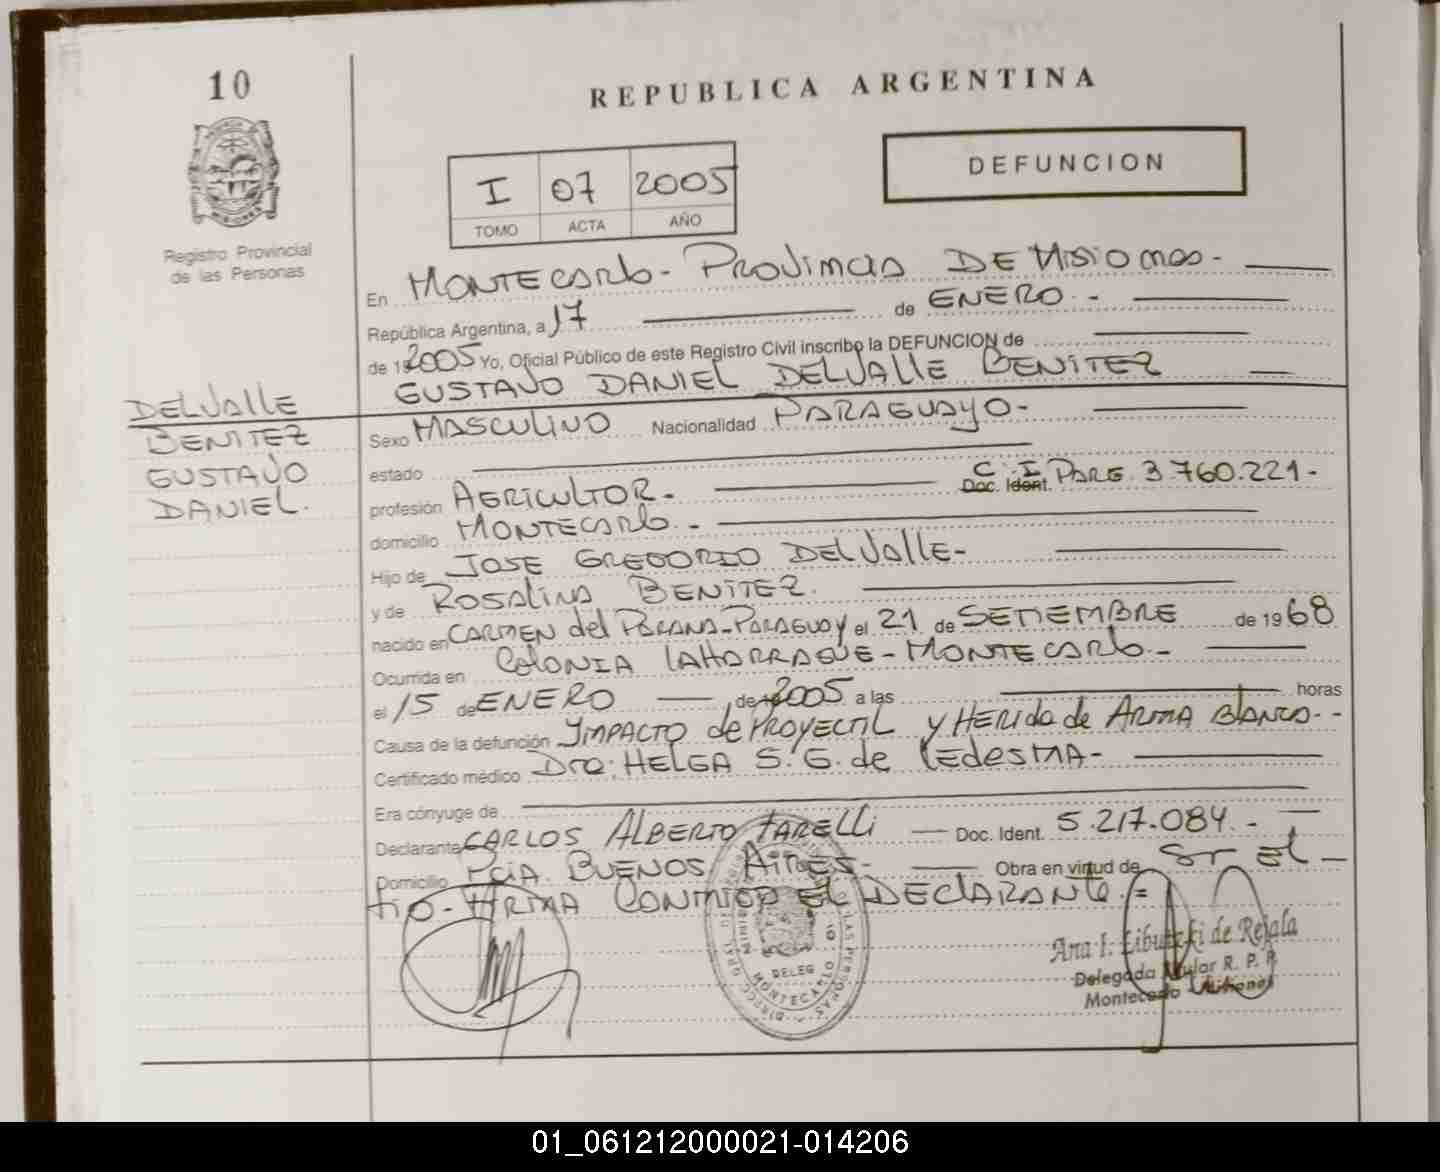 10
REPUBLICA ARGENTINA
DEFUNCION
I 07 2005
TOMO ACTA AÑO
Registro Provincial
de las Personas
En MONTECARLO - PROVINCIA DE MISIONES -
República Argentina, a 17 de ENERO -
de 2005 Yo, Oficial Público de este Registro Civil inscribo la DEFUNCION de
GUSTAVO DANIEL DELVALLE BENITEZ
DELVALLE
BENITEZ
GUSTAVO
DANIEL.
Sexo MASCULINO Nacionalidad PARAGUAYO -
estado
profesión AGRICULTOR - C. I. Doc. Ident. PARG. 3.760.221 -
domicilio MONTECARLO -
Hijo de JOSE GREGORIO DELVALLE -
y de ROSALINA BENITEZ.
nacido en CARMEN del PARANA - PARAGUAY el 21 de SETIEMBRE de 1968
Ocurrida en COLONIA LAHARRAGUE - MONTECARLO -
el 15 de ENERO de 2005 a las horas
Causa de la defunción IMPACTO de PROYECTIL y HERIDA de ARMA BLANCA -
Certificado médico Dra: HELGA S. G. de LEDESMA -
Era cónyuge de
Declarante CARLOS ALBERTO FARELLI Doc. Ident. 5.217.084 -
Domicilio PCIA. BUENOS AIRES - Obra en virtud de Sr El
TIO - FIRMA CONMIGO EL DECLARANTE. =
DELEG
MONTECARLO
Ana I. de Rejala
Delegada Titular R. P. P.
Montecarlo Misiones
01_061212000021-014206